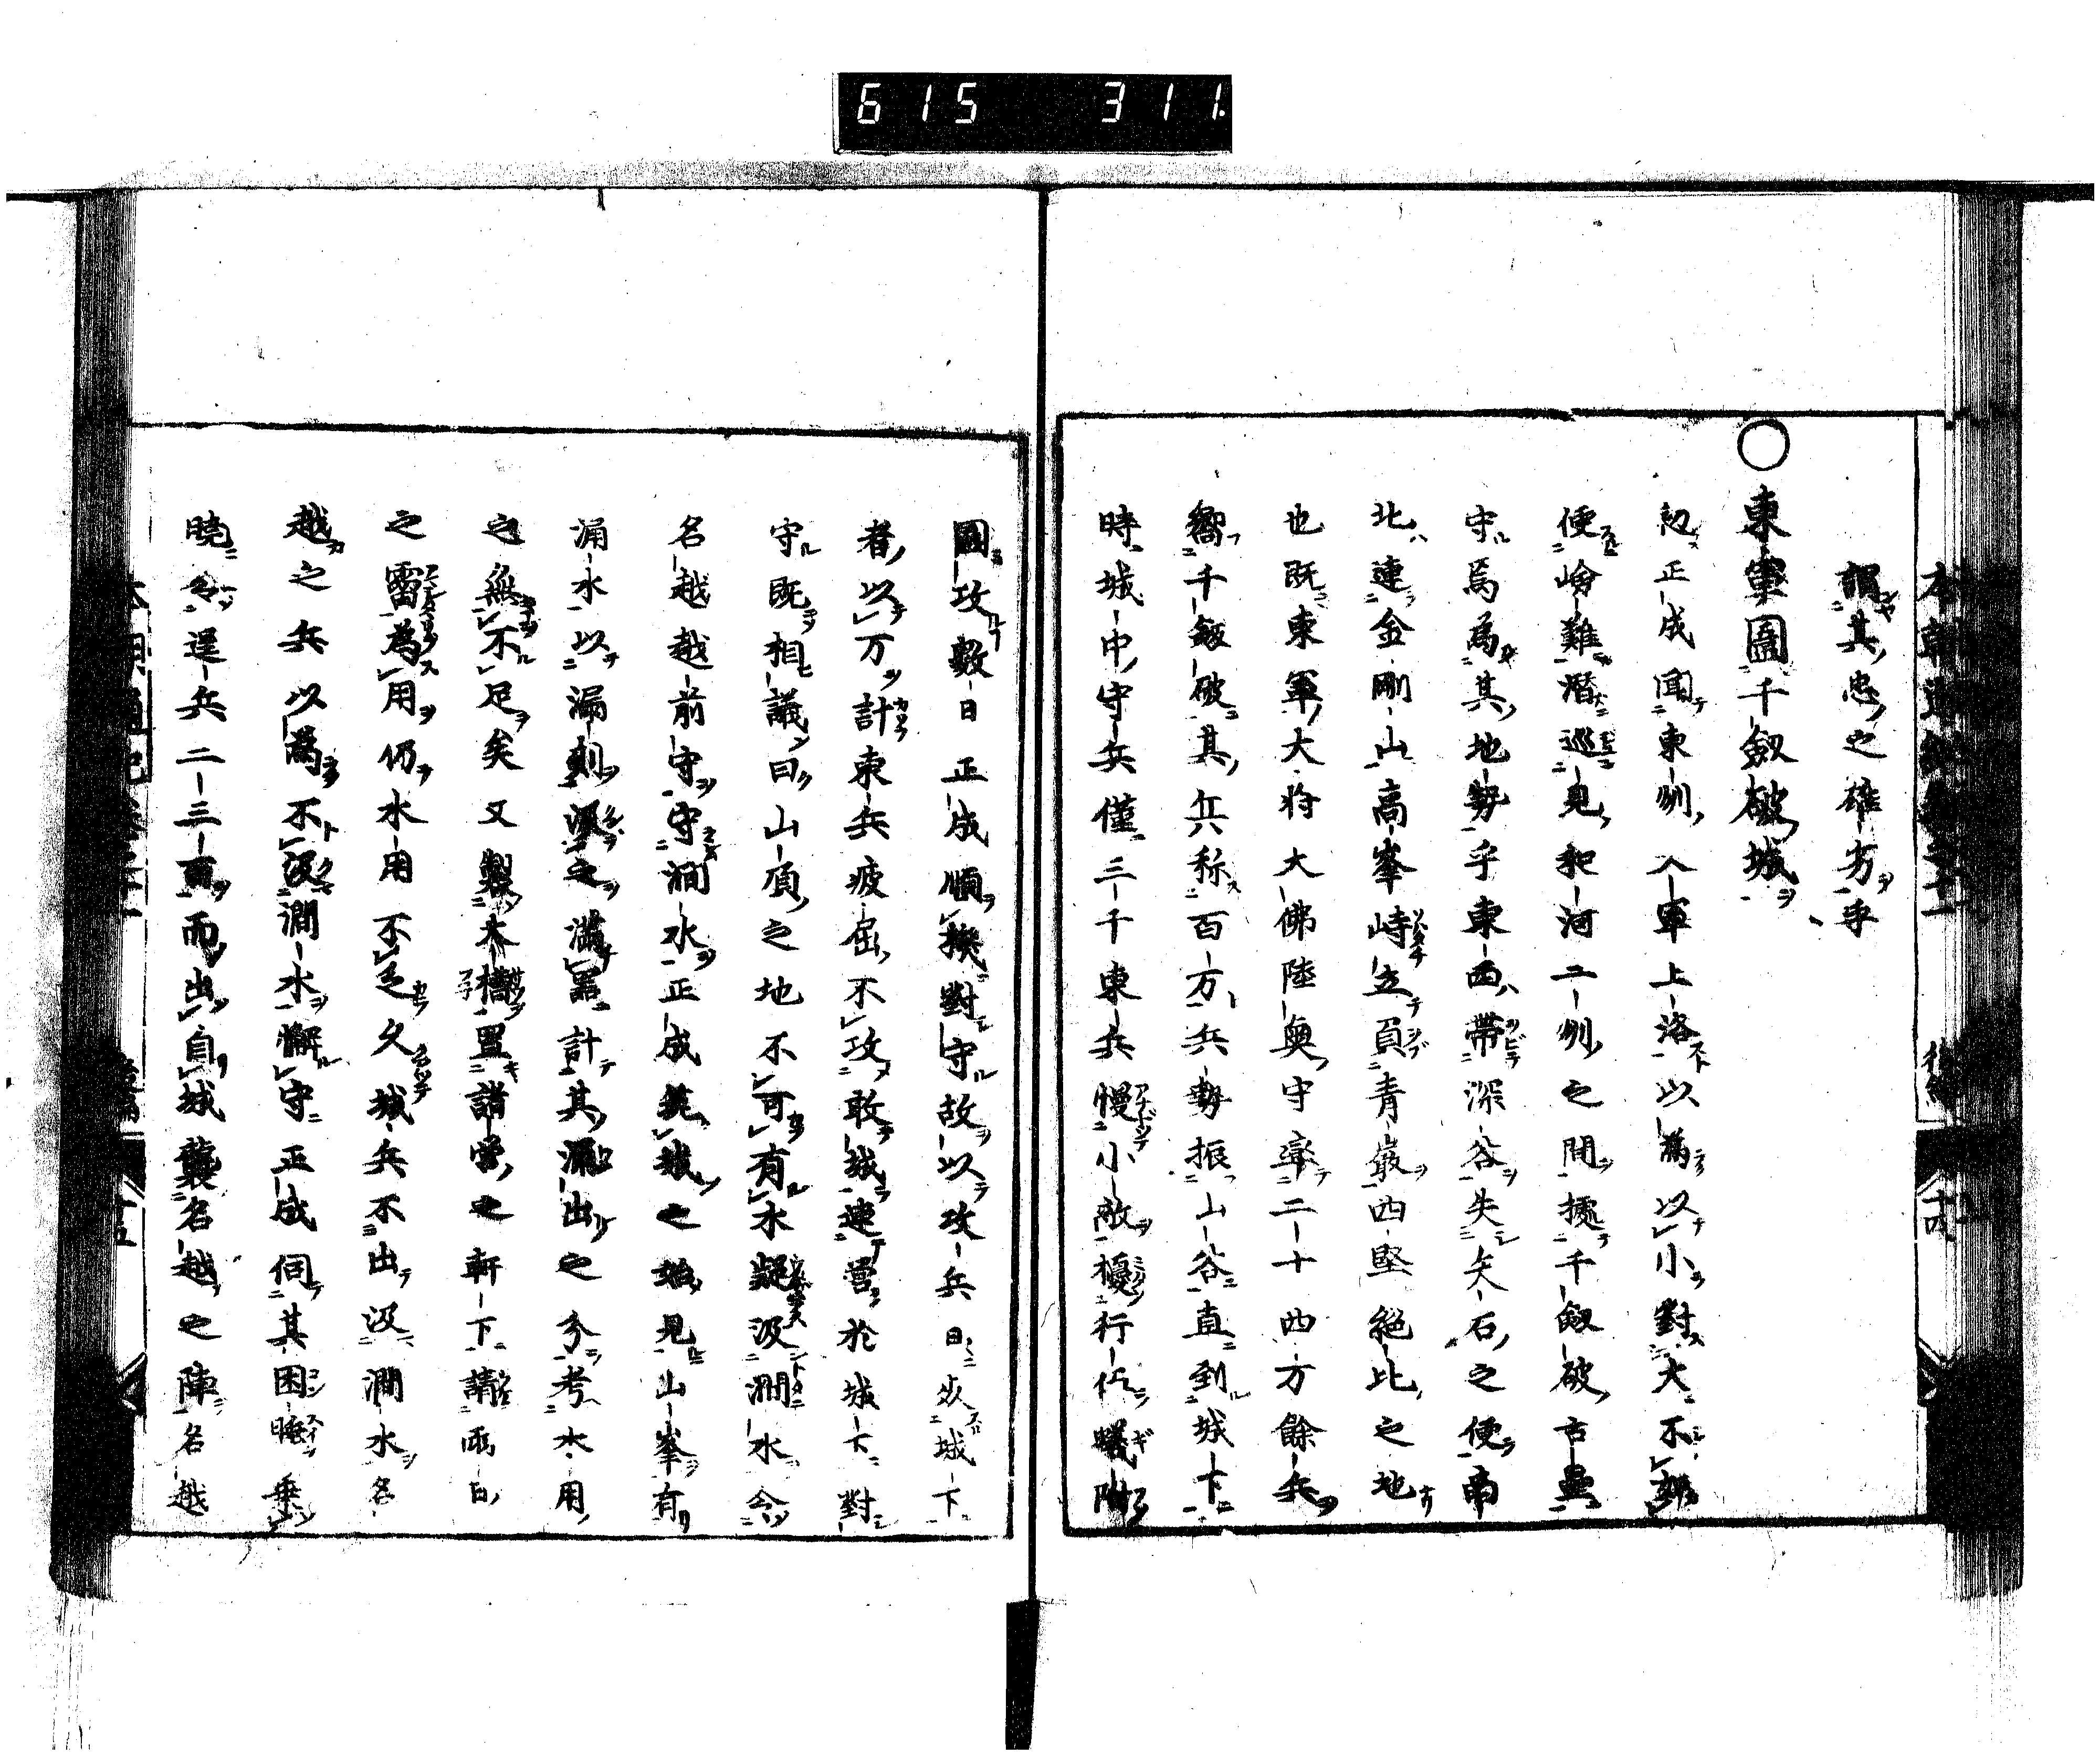 615 311.
謂其忠之確乎
東軍圍千劔破城
初正成聞東州人軍上洛以為以小對大不
便嶮難潜巡見和河二州之間據千劔破古壘
守焉為其地勢乎東西帶深谷失矢石之便南
北連金剛山高峯峙立負青巖西堅絕比之地
也既東軍大将大佛陸奥守率二十四万餘兵
嚮千劔破其兵称百万兵勢振山谷直到城下
時城中守兵僅三千東兵慢小敵行伍蟻附
圍攻數日正成順揆對守故以攻兵日城下
者以万計東兵疲屈不攻敢城連営於城下對
守既相議曰山頂之地不可有水凝汲澗水令
名越越前守守澗水正成築城之始見山峯有
涌水以漏刻汲之満器計其漏出之分考水用
之無不足矣又製木樋置諸営之軒下請雨日
之霤為用仍水用不乏久城兵不出汲澗水名
越之兵以為不汲澗水懈守正成伺其困睡乗
曉令逞兵二三百而出自城襲名越之陣名越